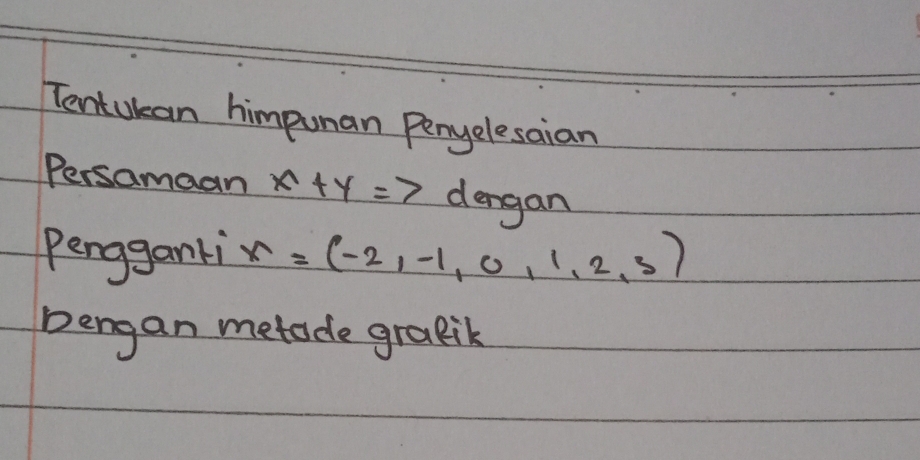 Tentukan himpunan Penyelesaian
Persamaan x + y = 7 dengan
Pengganti x = (-2, -1, 0, 1, 2, 3)
Dengan metode grafik